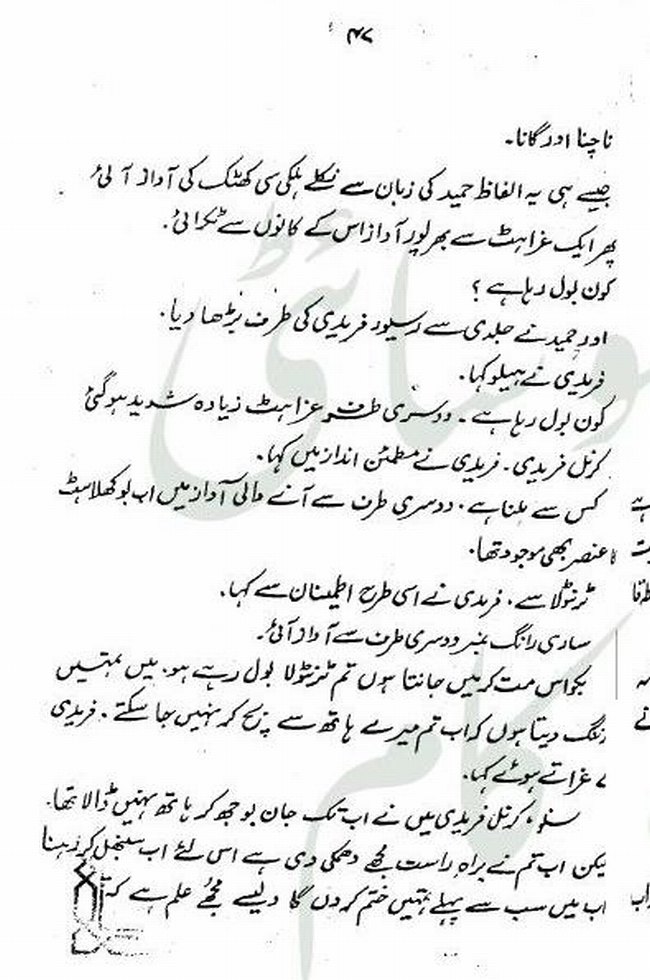 ۴۷
ناچنا اور گانا۔
جیسے ہی یہ الفاظ حمید کی زبان سے نکلے ہلکی سی کھٹک کی آواز آئی
پھر ایک غراہٹ سے بھرپور آواز اس کے کانوں سے ٹکرائی۔
کون بول رہا ہے ؟
اور حمید نے جلدی سے رسیور فریدی کی طرف بڑھا دیا۔
فریدی نے ہیلو کہا۔
کون بول رہا ہے ۔ دوسری طرف غراہٹ زیادہ شدید ہو گئی
کرنل فریدی ۔ فریدی نے مطمئن انداز میں کہا۔
کس سے ملنا ہے ۔ دوسری طرف سے آنے والی آواز میں اب بوکھلاہٹ
کا عنصر بھی موجود تھا۔
ٹرنٹولا سے ۔ فریدی نے اسی طرح اطمینان سے کہا۔
ساری رانگ نمبر دوسری طرف سے آواز آئی۔
بکواس مت کر میں جانتا ہوں تم ٹرنٹولا بول رہے ہو۔ میں تمہیں
رنگ دیتا ہوں کہ اب تم میرے ہاتھ سے بچ کر نہیں جا سکتے ۔ فریدی
نے غراتے ہوئے کہا۔
سنو، کرنل فریدی میں نے اب تک جان بوجھ کر ہاتھ نہیں ڈالا تھا۔
لیکن اب تم نے براہ راست مجھے دھمکی دی ہے اس لئے اب سنبھل کر رہنا
اب میں سب سے پہلے تمہیں ختم کر دوں گا ویسے مجھے علم ہے کہ